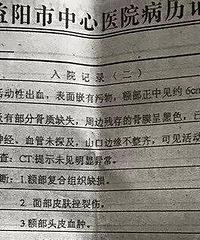 益阳市中心医院病历记
入院记录（二）
活动性出血，表面嵌有污物，额部正中见约6cm
及有部分骨质缺失，周边残存的骨膜呈黑色，已
神经、血管未探及，山口边缘不整齐，可见活动
查：CT:提示未见明显异常。
断：1.额部复合组织缺损。
2.面部皮肤挫裂伤。
3额部头皮血肿。